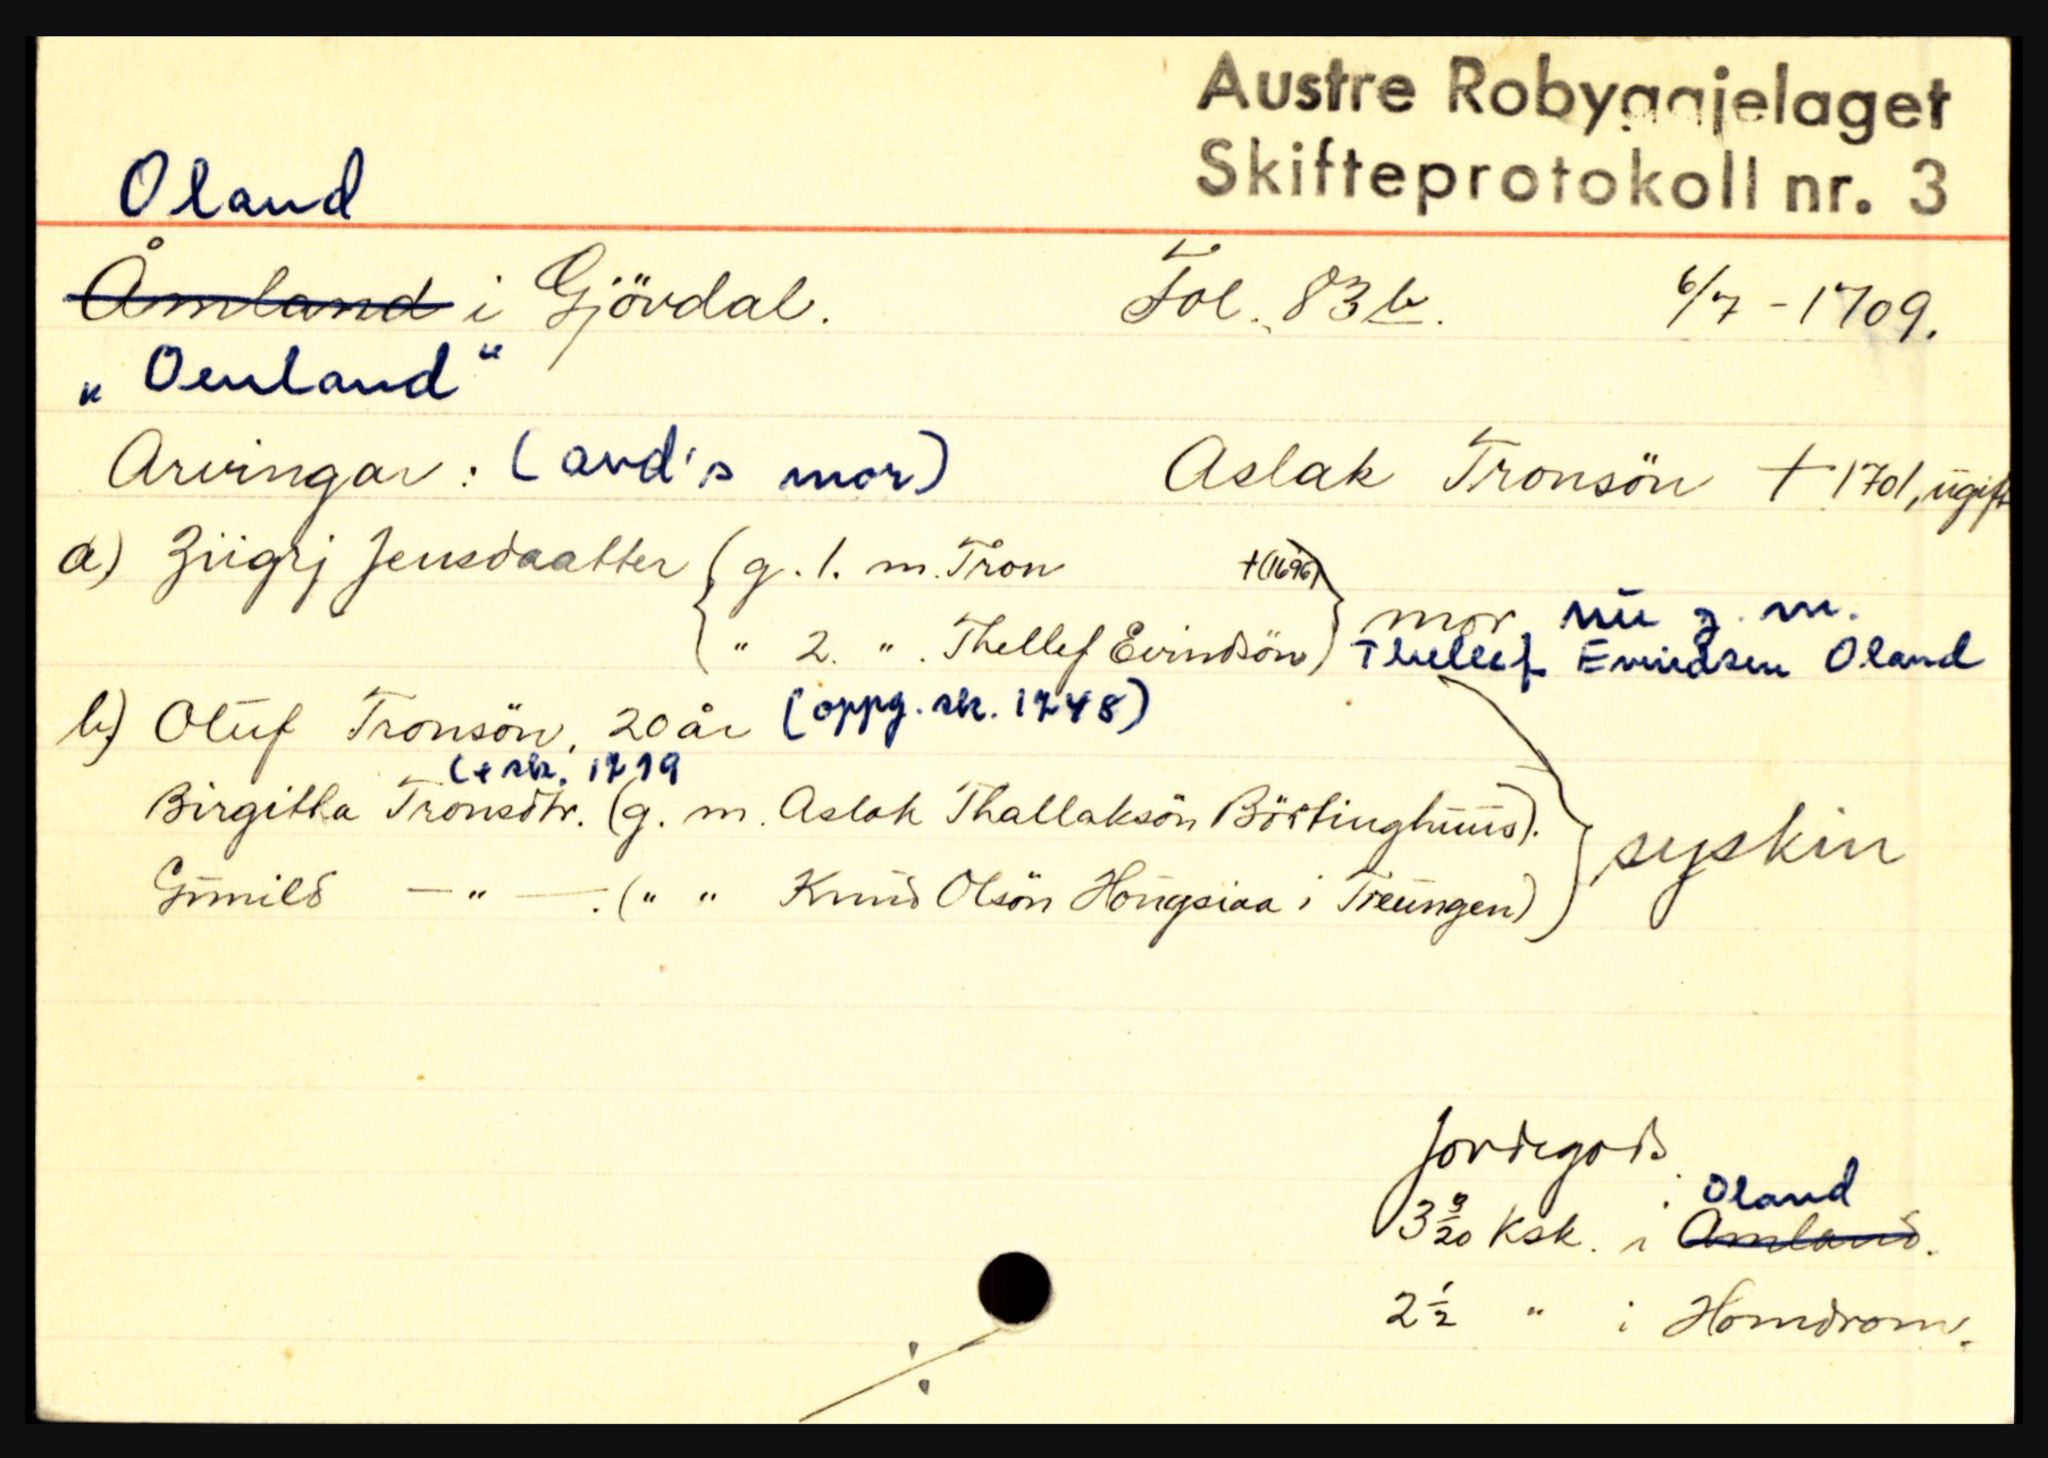 Austre Robyggjelaget
Skifteprotokoll nr. 3
Oland
Åmland i Gjövdal. Fol. 83 b. 6/7 - 1709.
„ Oenland “
Arvingar: (avd's mor) Aslak Tronsön † 1701, ŭgift
a) Ziigrj Jensdaatter (g. 1. m. Tron †(1696)
" 2. " . Thellef Evindsön) mor, nŭ g. m.
Thellef Evindsen Oland
b) Olŭf Tronsön, 20 år (oppg. sk. 1748)
(+ sk. 1719
Birgitha Tronsdtr. (g. m. Aslak Thallaksön Börtinghŭŭs).
Gŭnild — " — . (" " Knud Olsön Hoŭgsiaa i Treŭngen) syskin
Jordegods
Oland
3 9/20 Ksk. i Åmland.
2 1/2 " i Homdrom.